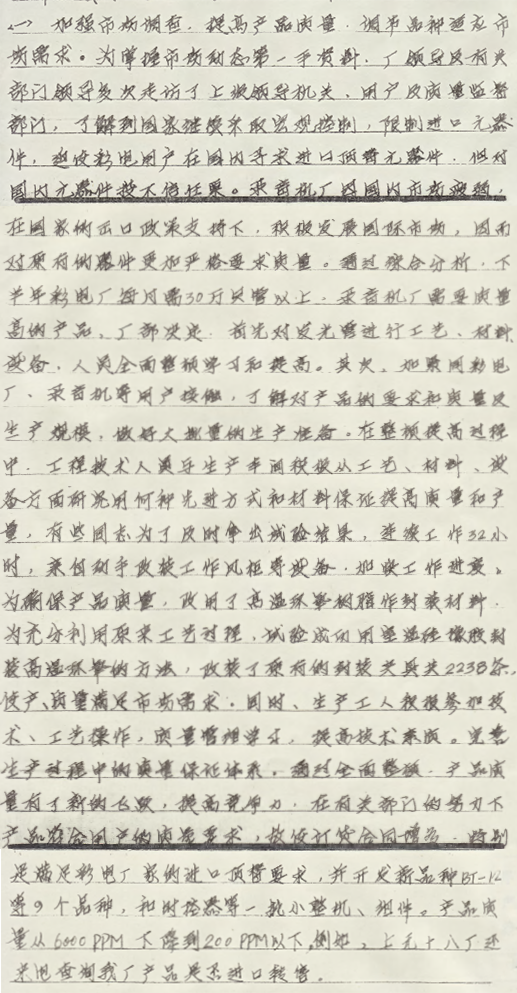 ㈠ 加强市场调查,提高产品质量,调节品种适应市
场需求。为掌握市场动态第一手资料,厂领导及有关
部门领导多次走访了上级领导机关、用户及质量监督
部门,了解到国家继续采取宏观控制,限制进口元器
件,迫使彩电用户在国内寻求进口顶替元器件,但对
国内元器件技不信任果。录音机厂因国内市场疲软,
在国家的出口政策支持下,积极发展国际市场,因而
对原有的器件更加严格要求质量。通过综合分析,下
半年彩电厂每月需30万只管以上,录音机厂需要质量
高的产品。厂部决定,首先对发光管进行工艺、材料
设备、人员全面整顿学习和提高。其次,加紧同彩电
厂、录音机等用户接触,了解对产品的要求和质量及
生产规模,做好大批量的生产准备。在整顿提高过程
中,工程技术人员与生产车间积极从工艺、材料、设
备方面研究用何种先进方式和材料保证提高质量和产
量,有些同志为了及时拿出试验结果,连续工作32小
时,亲自动手改装工作风柜等设备,加快工作进度。
为确保产品质量,改用了高温环氧树脂作封装材料,
为充分利用原来工艺过程,试验成功用室温硅橡胶封
装高温环氧的方法,改装了原有的封装夹具共2238条,
使产、质量满足市场需求。同时、生产工人积极参加技
术、工艺操作,质量管理学习,提高技术素质。完善
生产过程中的质量保证体系。通过全面整顿,产品质
量有了新的飞跃,提高竞争力,在有关部门的努力下
产品符合用户的质量要求,故使订货合同增多,特别
是满足彩电厂家的进口顶替要求,并开发新品种BT-12
等9个品种,和时控器等一批小整机、组件。产品质
量从6000PPM下降到200PPM以下,例如,上无十八厂还
来电查询我厂产品是否进口铰管。